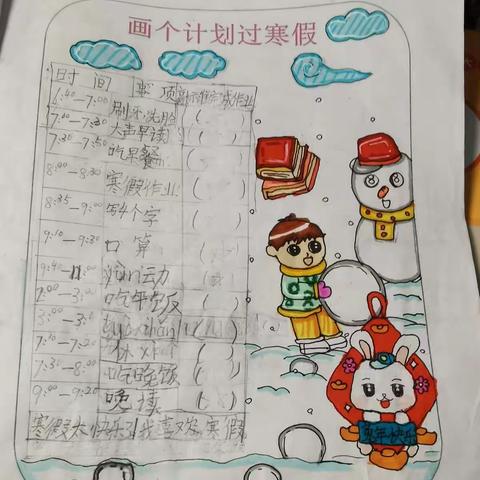 画个计划过寒假
时间 事项 高标准完成作业
6:40-7:00 刷牙洗脸 ( )
7:10-7:30 大声早读 ( )
7:30-7:50 吃早餐 ( )
8:00-8:30 寒假作业 ( )
8:35-9:00 写4个字 ( )
9:10-9:30 口算 ( )
9:40-11:00 yùn运力 ( )
吃午饭 ( )
( )
休 ( )
7:30-8:00 吃晚饭 ( )
9:00-9:20 晚读 ( )
寒假太快乐了我喜欢寒假
兔年快乐